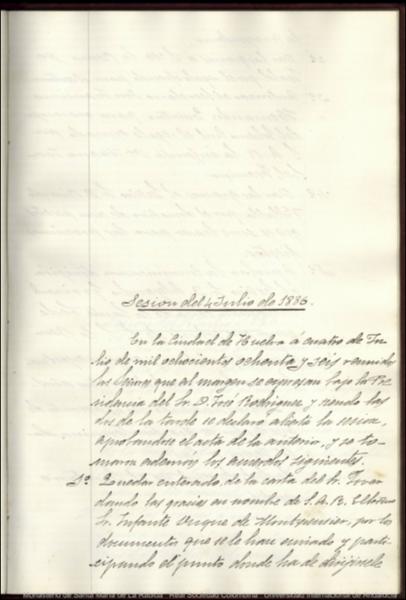 Sesion del 4 Julio de 1886.
En la Ciudad de Huelva á cuatro de Ju-
lio de mil ochocientos ochenta y seis reunidos
los Sres que al margen se expresan bajo la Pre-
sidencia del Sr. D. José Rodriguez y siendo las
dos de la tarde se declaró abierta la sesion,
aprobandose el acta de la anterior, y se to-
maron además los acuerdos siguientes.
1º Quedar enterado, de la carta del Sr.
dando las gracias en nombre de S. A. R. el
Sr. Infante Duque de Montpensier, por los
documentos que se le han enviado y parti-
cipando el punto donde ha de dirijirsele
Monasterio de Santa María de La Rábida Real Sociedad Colombina Universidad Internacional de Andalucía